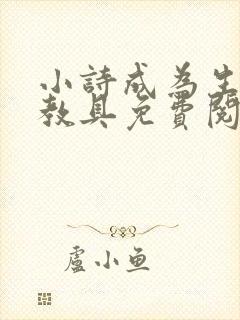 小詩成為生
教具免費閱
盧小鱼